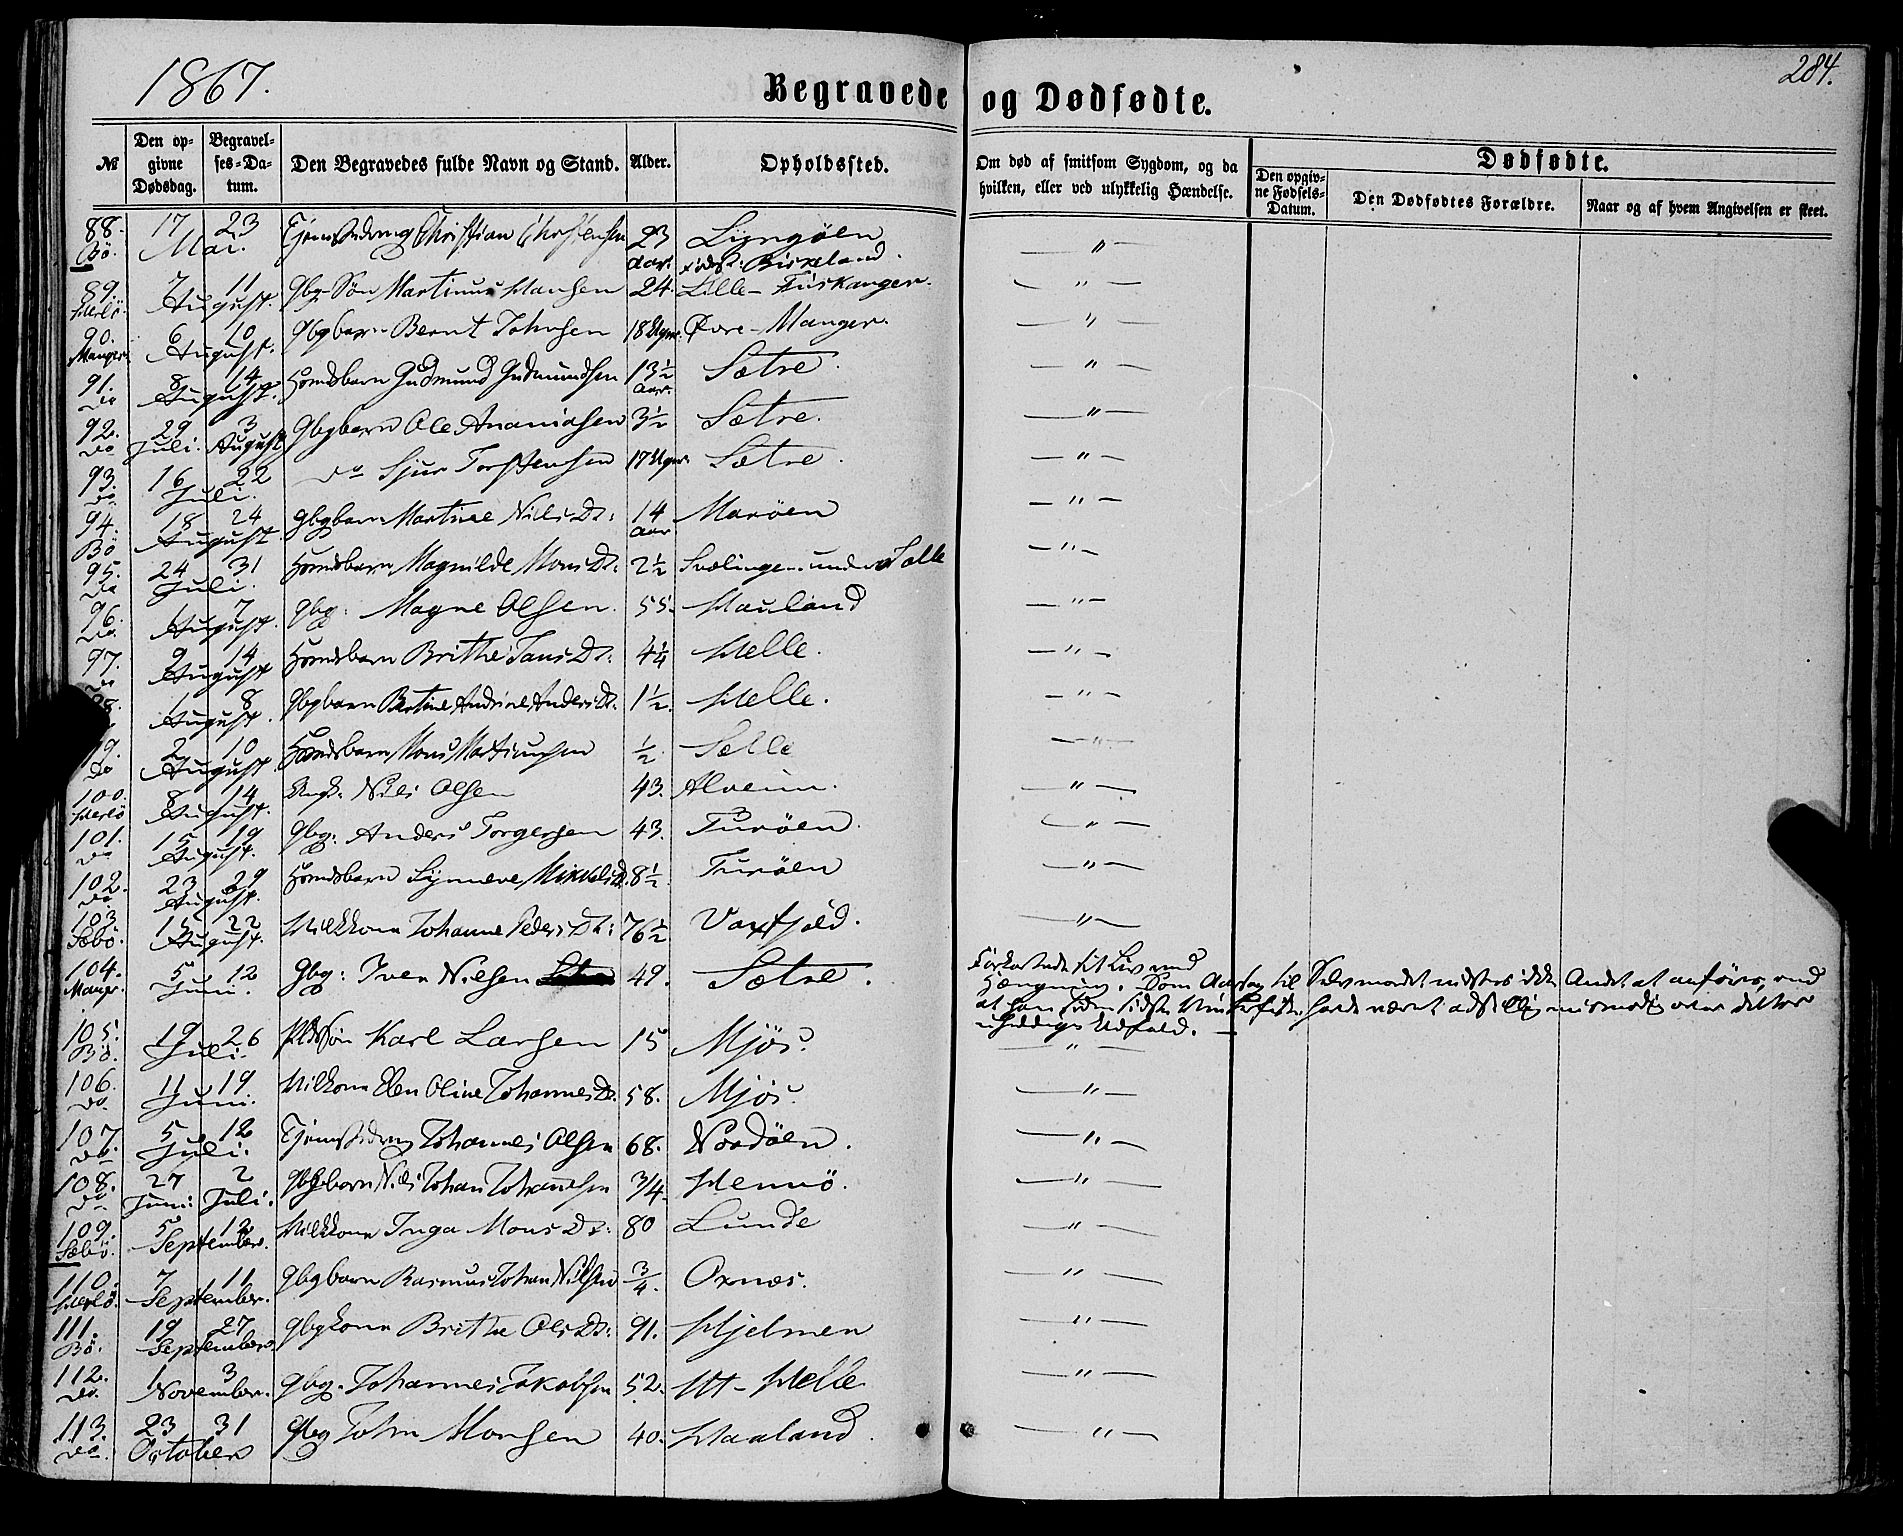 1867.
Begravede og Dødfødte.
284.
№
Den opgivne Dødsdag.
Begravelses-Datum.
Den Begravedes fulde Navn og Stand.
Alder.
Opholdssted.
Om død af smitsom Sygdom, og da hvilken, eller ved ulykkelig Hændelse.
Dødfødte.
Den opgivne Fødsels-Datum.
Den Dødfødtes Forældre.
Naar og af hvem Angivelsen er skeet.
88. Bö. 17 23 Mai. Christian Christensen 23 Aar. Lyngöen
89. Herlö. 7 11 August. Gbg. Søn Martinus Hansen 24. Lille-Fiskanger.
90. Manger. 6 10 August. Gbgbarn Bernt Johnsen 18 Uger. Övre-Manger.
91. Do 8 14 August. Gudmund Gudmundsen 13½ Aar. Sætre.
92. Do 29 Juli. 3 August Gbgbarn Ole Ananiasen 3½ Sætre.
93. Do 16 22 Juli. Do Sjur Torstensen 17 Uger. Sætre.
94. Bö 18 24 August. Gbgbarn Martine Nils Dr: 14 Aar Maröen
95. Do 24 31 Juli. Magnilde Mons Dr: 2½ under Sælle
96. Do 1 7 August. Gbg: Magne Olsen. 55. Hauland
97. Do 9 14 August Brithe Jans Dr: 4¼ Helle.
98. 1 8 August. Gbgbarn Bertine Andrine Anders Dr. 1½. Helle.
99. Do 2 10 August. Mons Martinusen ½ Sælle
100. Herlö 8 14 August. Ungk. Nils Olsen 43. Alveim.
101. Do 15 19 August. Gbg: Anders Torgersen 43. Turöen.
102. Do 23 29 August. Synneve Mikkels D. 8½ Turöen
103 Sæbö. 15 22 August. Johanne Peders Dr: 76½
104. Manger. 5 12 Juni. Gbg: Iver Nilsen 49. Sætre.
Forkortede sit Liv ved
Hængning. Som Aarsag til Selvmordet vidstes ikke Andet at anføres, end
at han siden sidste Vinterfiske havde været adskillig mismodig over dettes
uheldige Udfald.
105. Bö. 19 26 Juli. Karl Larsen 15 Mjös.
106. Do. 11 19 Juni. Oline Johannes Dr. 58. Mjös.
107. Do. 5 12 Juli. Johannes Olsen 68. Nordöen.
108. Do 27 Juni: 2 Juli. Gbgbarn Nils Johan Johannesen 3/4. Hennö.
109. Sæbö. 5 12 September. Inga Mons Dr: 80 Lunde
110. Herlö. 7 11 September. Gbgbarn Rasmus Johan Nilsen 3/4. Oxnes.
111. Bö. 19 27 September. Gbgkone Brithe Ols Dr: 91. Hjelmen
112. Do. 1 3 November. Gbg. Johannes Jakobsen 52. Ut-Helle
113. Do. 23 31 October Gbg John Monsen 40. Haaland.